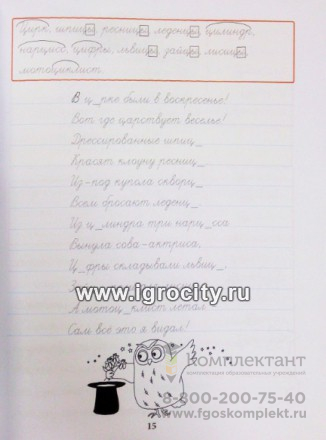 Цирк, шпицы, ресницы, леденцы, цилиндр,
нарцисс, цифры, львицы, зайцы, лисицы,
мотоциклист.
В ц_рке были в воскресенье!
Вот где царствует веселье!
Дрессированные шпиц_
Красят клоуну ресниц_
Из-под купола скворц_
Всем бросают леденц_
Из ц_линдра три нарц_сса
Вынула сова-актриса.
Ц_фры складывали львиц_.
www.igrocity.ru
А мотоц_клист летал
Сам всё это я видал!
КОМПЛЕКТАНТ
8-800-200-75-40
www.fgoskomplekt.ru
15